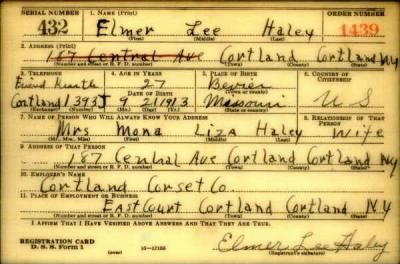 SERIAL NUMBER 1. NAME (Print) ORDER NUMBER
432 Elmer Lee Haley 1439
(First) (Middle) (Last)
2. ADDRESS (Print)
187 Central Ave Cortland Cortland NY
(Number and street or R. F. D. number) (Town) (County) (State)
3. TELEPHONE 4. AGE IN YEARS 5. PLACE OF BIRTH 6. COUNTRY OF CITIZENSHIP
27 Bevier
DATE OF BIRTH (Town or county)
Cortland 1393J 9 2 1913 Missouri U S
(Exchange) (No.) (Mo.) (Day) (Yr.) (State or country)
7. NAME OF PERSON WHO WILL ALWAYS KNOW YOUR ADDRESS 8. RELATIONSHIP OF THAT PERSON
Mrs Mona Liza Haley Wife
(Mr., Mrs., Miss) (First) (Middle) (Last)
9. ADDRESS OF THAT PERSON
187 Central Ave Cortland Cortland NY
(Number and street or R. F. D. number) (Town) (County) (State)
10. EMPLOYER'S NAME
Cortland Corset Co.
11. PLACE OF EMPLOYMENT OR BUSINESS
East Court Cortland Cortland N.Y
(Number and street or R. F. D. number) (Town) (County) (State)
I AFFIRM THAT I HAVE VERIFIED ABOVE ANSWERS AND THAT THEY ARE TRUE.
REGISTRATION CARD
D. S. S. Form 1 (over) 16-17105 Elmer Lee Haley
(Registrant's signature)